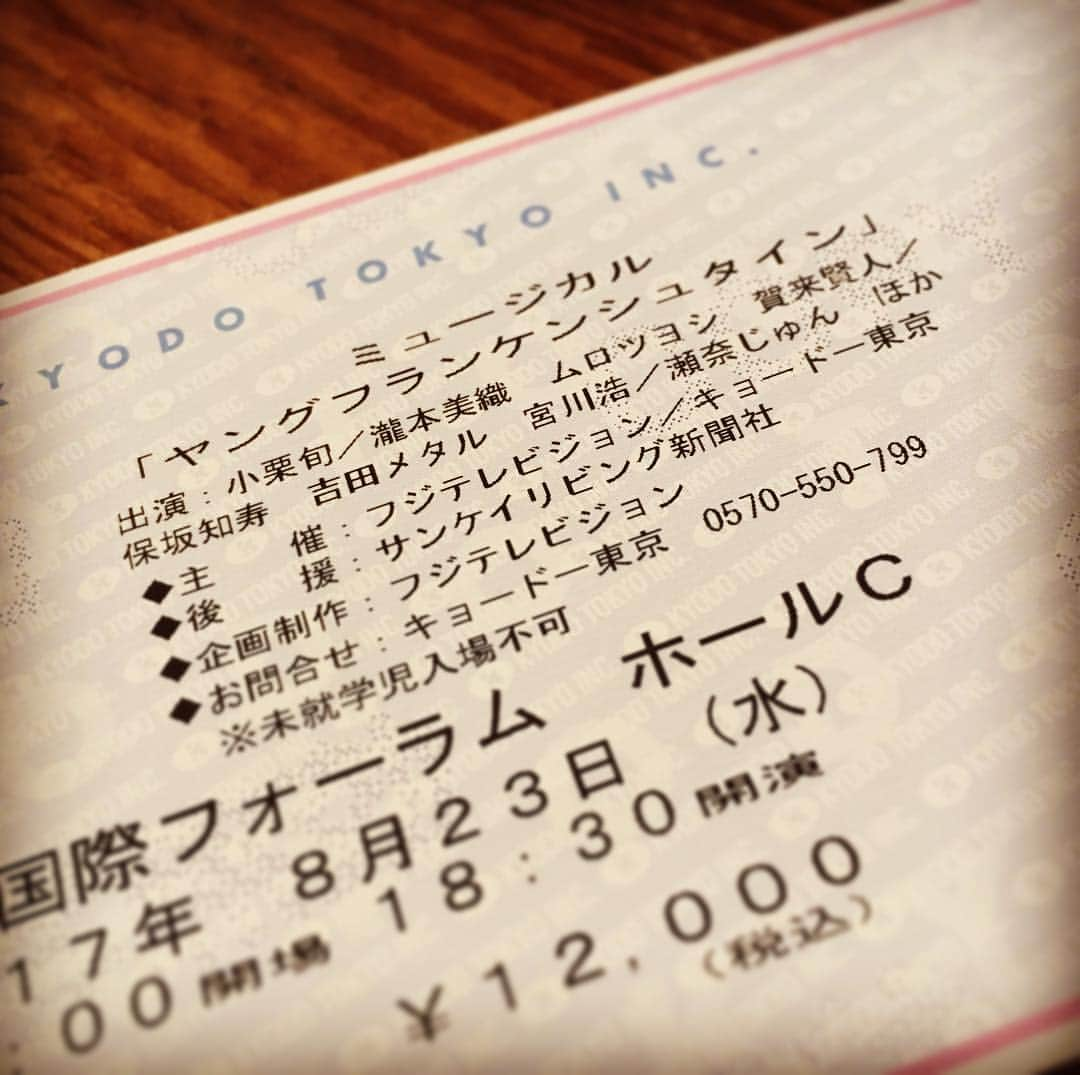 KYODO TOKYO INC.
ミュージカル
「ヤングフランケンシュタイン」
出演：小栗旬／瀧本美織　ムロツヨシ　賀来賢人／
保坂知寿　吉田メタル　宮川浩／瀬奈じゅん　ほか
◆主　　催：フジテレビジョン／キョードー東京
◆後　　援：サンケイリビング新聞社
◆企画制作：フジテレビジョン
◆お問合せ：キョードー東京　0570-550-799
※未就学児入場不可
国際フォーラム　ホールC
17年　8月23日　(水)
:00開場　18:30開演
¥12,000
(税込)